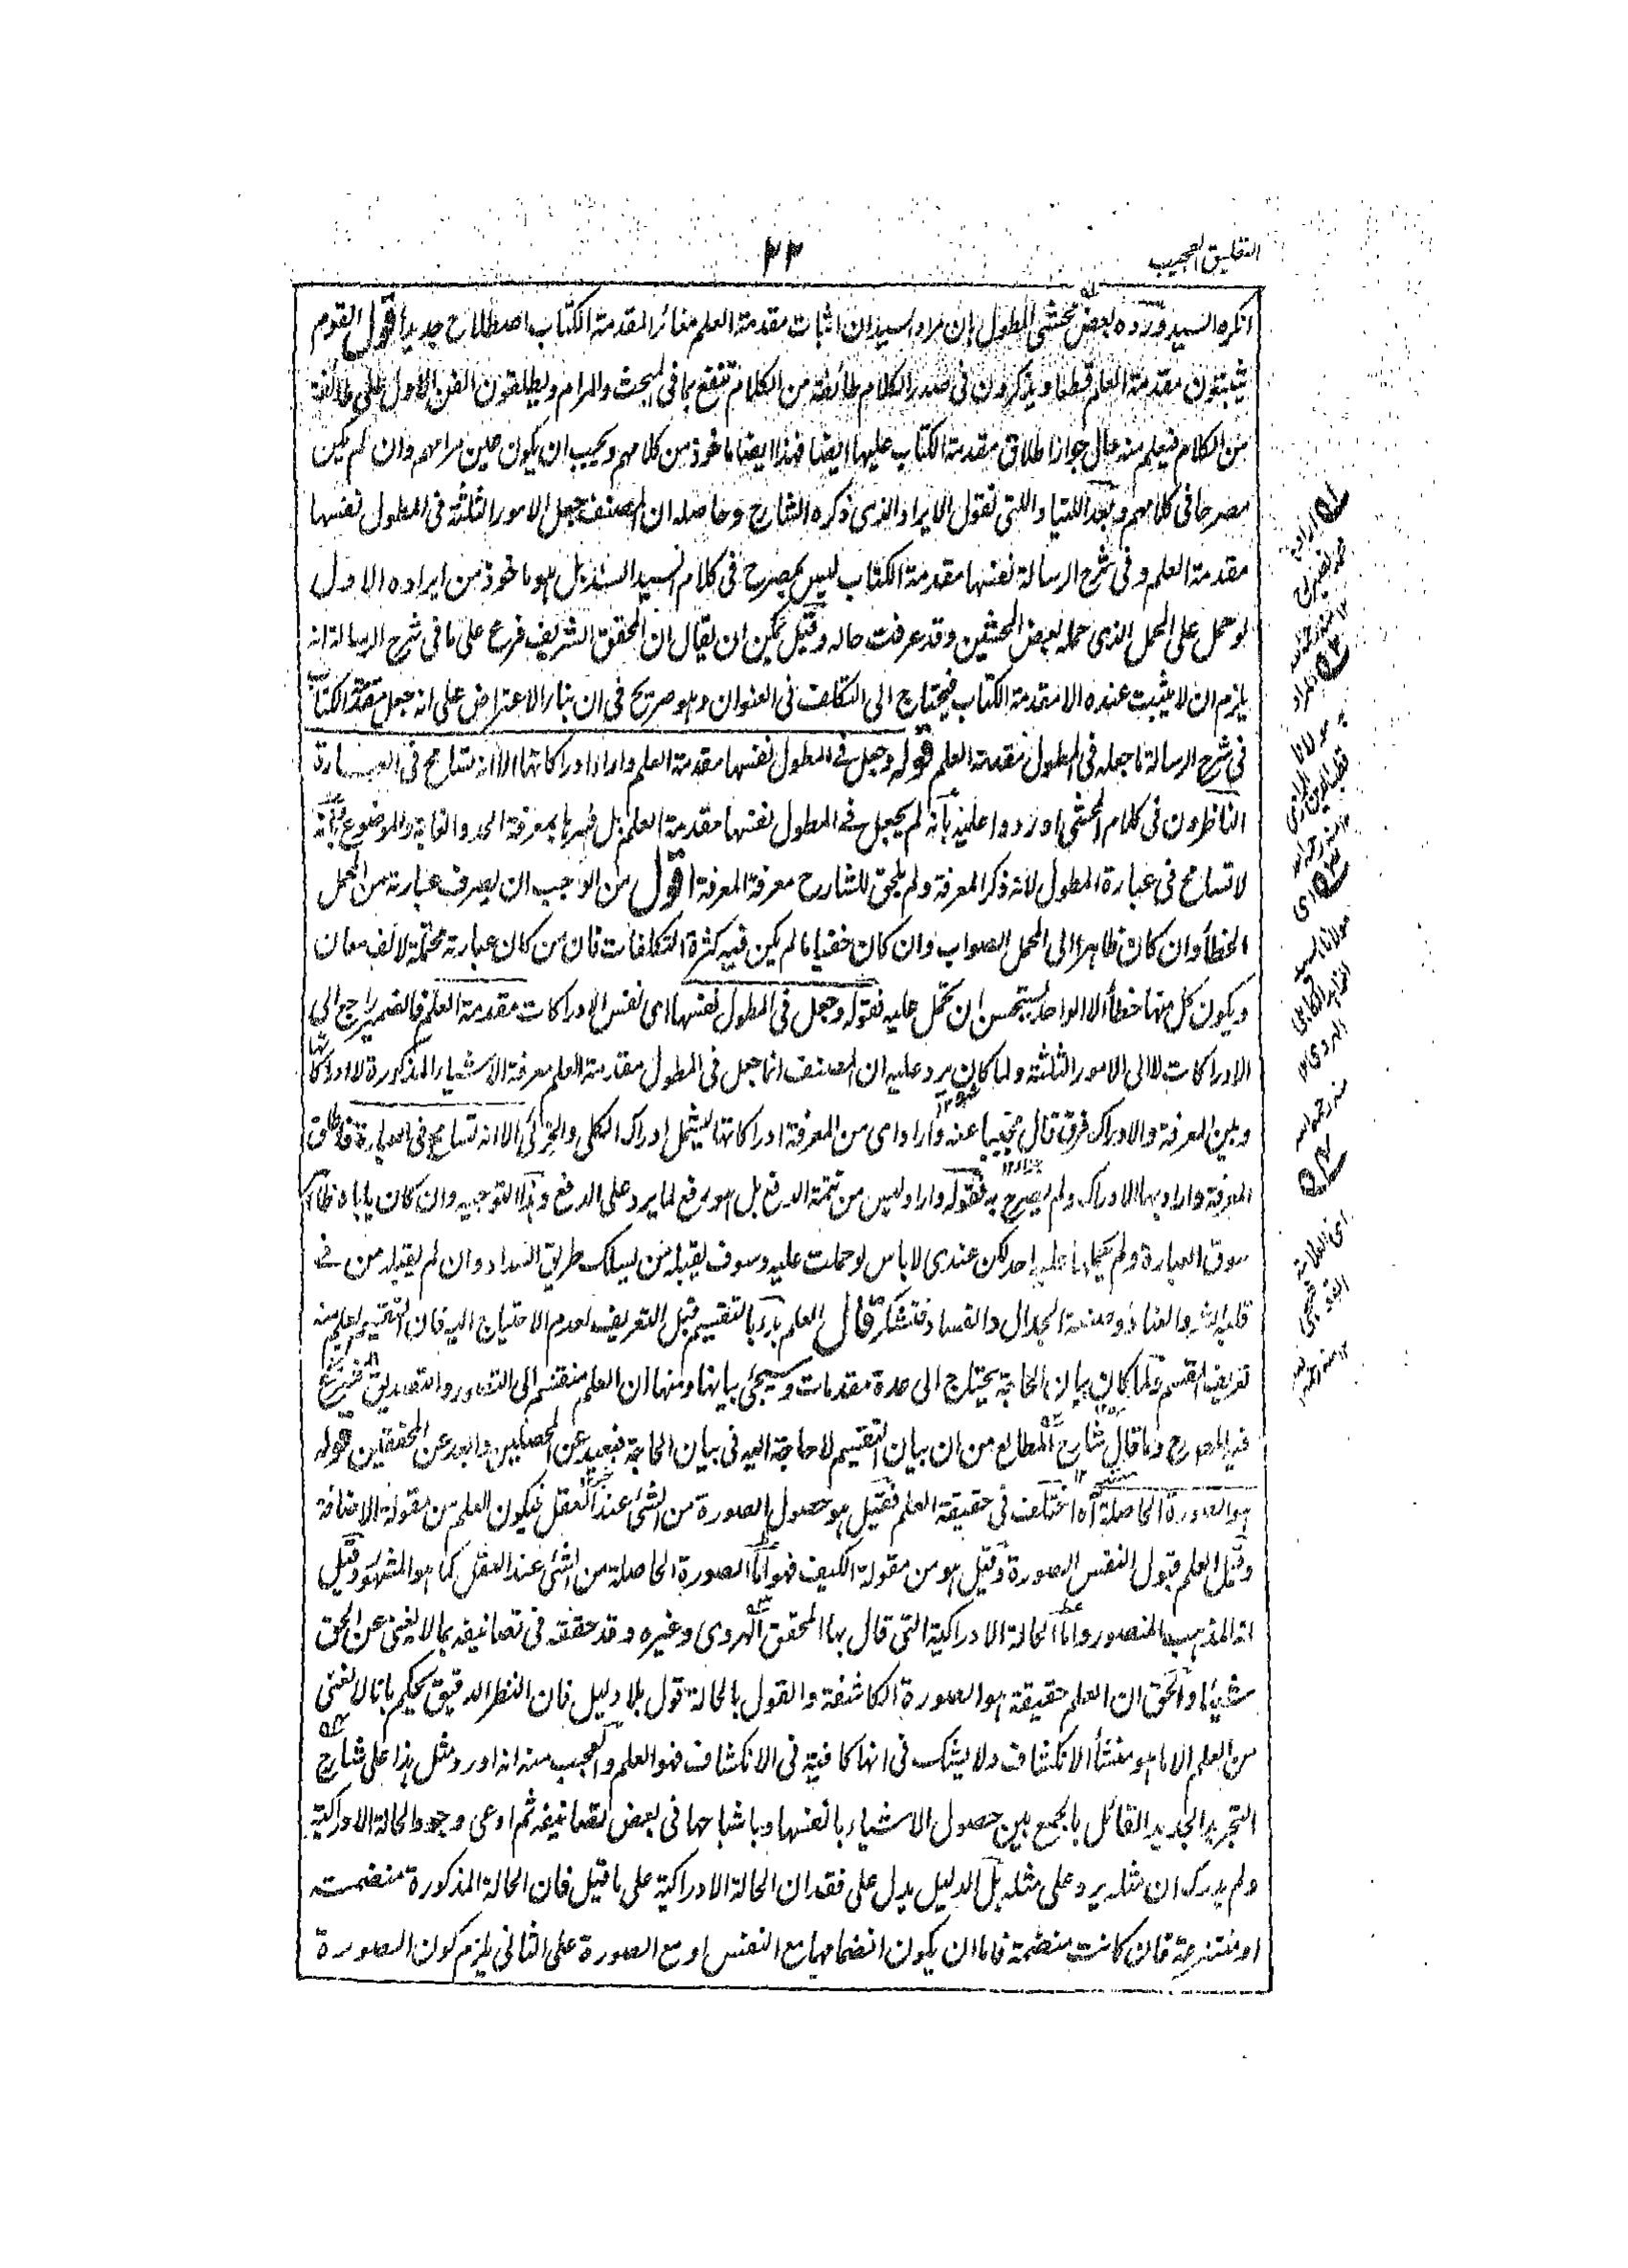 التعليق العجيب
٢٢
انكره السيد ورده بعض محشى المطول بان مراد السيد ان اثبات مقدمة العلم مغائر المقدمة الكتاب اصطلاح جديد اقول القوم
يثبتون مقدمة العلم قطعا ويذكرون فى صدر الكلام طائفة من الكلام تنفع بما فى المبحث والمرام ويطلقون الفن الاول على طائفة
من الكلام فيعلم منه حال جواز اطلاق مقدمة الكتاب عليها ايضا فهذا ايضا ماخوذ من كلامهم ويجيب ان يكون عين مرامهم وان لم يكن
مصرحا فى كلامهم وبعد اللتيا واللتى نقول الايراد الذى ذكره الشارح وحاصله ان المصنف جعل الامور الثلثة فى المطول نفسها
مقدمة العلم وفى شرح الرسالة نفسها مقدمة الكتاب ليس بمصرح فى كلام السيد السند بل هو ماخوذ من ايراده الاول
لو حمل على المحمل الذى حمله بعض المحشين وقد عرفت حاله وقيل يمكن ان يقال ان المحقق الشريف فرع على ما فى شرح الرسالة انه
يلزم ان لا يثبت عنده الا مقدمة الكتاب فيحتاج الى التكلف فى العنوان وهو صريح فى ان بناء الاعتراض على انه جعل مقدمة الكتاب
فى شرح الرسالة ما جعله فى المطول مقدمة العلم قوله وجعل فى المطول نفسها مقدمة العلم واراد ادراكاتها الا انه تسامح فى العبارة
الناظرون فى كلام المحشى اوردوا عليه بانه لم يجعل فى المطول نفسها مقدمة العلم بل فسرها بمعرفة الحد والغاية والموضوع وبانه
لا تسامح فى عبارة المطول لانه ذكر المعرفة ولم يلحق للشارح معرفة المعرفة اقول من الواجب ان يصرف عبارته من المحمل
الخطأ وان كان ظاهرا الى المحمل الصواب وان كان خفيا ما لم يكن فيه كثرة التكلفات فان من كان عبارته محتملة لالف معان
ويكون كل منها خطأ الا الواحد يستحسن ان تحمل عليه فقوله وجعل فى المطول نفسها اى نفس الادراكات مقدمة العلم فالضمير راجع الى
الادراكات لا الى الامور الثلثة ولما كان يرد عليه ان المصنف انما جعل فى المطول مقدمة العلم معرفة الاشياء المذكورة لا ادراكاتها
وبين المعرفة والادراك فرق قال مجيبا عنه واراد اى من المعرفة ادراكاتها ليشمل ادراك الكلى والجزئى الا انه تسامح فى العبارة فاطلق
المعرفة واراد بها الادراك ولم يصرح به فقوله واراد ليس من تتمة الدفع بل هو دفع لما يرد على الدفع وهذا التوجيه وان كان ياباه ظاهر
سوق العبارة ولم يحملها عليه احد لكن عندى لا باس لو حملت عليه وسوف يقبله من يسلك طريق السداد وان لم يقبله من فى
قلبه الشر والعناد وصنعة الجدال والفساد فتشكر قال العلم بدء بالتقسيم قبل التعريف لعدم الاحتياج اليه فان التقسيم يعلم منه
تعريف القسم فلما كان بيان الحاجة يحتاج الى عدة مقدمات وسيجئ بيانها ومنها ان العلم منقسم الى التصور والتصديق شرع
فيه المصرح وما قال شارح المطالع من ان بيان التقسيم لا حاجة اليه فى بيان الحاجة فبعيد عن المحصلين وابعد عن المحققين قوله
هو الصورة الحاصلة آه اختلف فى حقيقة العلم فقيل هو حصول الصورة من الشئ عند العقل فيكون العلم من مقولة الاضافة
وقيل العلم قبول النفس الصورة وقيل هو من مقولة الكيف فهو اما الصورة الحاصلة من الشئ عند العقل كما هو المشهور وقيل
انه المذهب المنصور واما الحالة الادراكية التى قال بها المحقق الهروى وغيره وقد حققه فى تصانيفه بما لا يغنى عن الحق
شيئا والحق ان العلم حقيقة هو الصورة الكاشفة والقول بالحالة قول بلا دليل فان النظر الدقيق يحكم بانا لا نعنى
من العلم الا ما هو منشأ الانكشاف ولا يشك فى انها كافية فى الانكشاف فهو العلم والعجب منه انه اورد مثل هذا على شارح
التجريد الجديد القائل بالجمع بين حصول الاشياء بانفسها وباشباحها فى بعض تصانيفه ثم ادعى وجود الحالة الادراكية
ولم يدرك ان مثله يرد على مثله بل الدليل يدل على فقدان الحالة الادراكية على ما قيل فان الحالة المذكورة منضمة
او منتزعة فان كانت منضمة فاما ان يكون انضمامها مع النفس او مع الصورة على الثانى يلزم كون الصورة